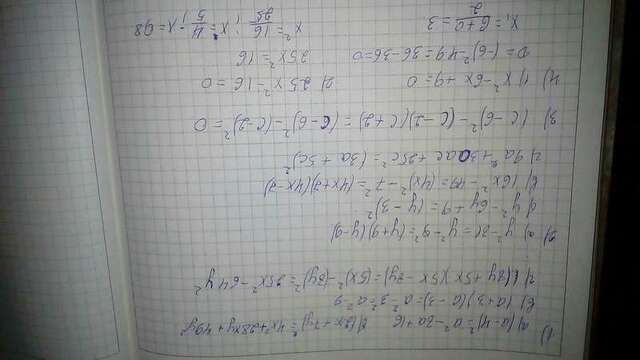 1) a) (a-4)²=a²-8a+16 б) (2x+7y)²=4x²+28xy+49y²
в) (a+3)(a-3)=a²-3²=a²-9
г) (8y+5x)(5x-8y)=(5x)²-(8y)²=25x²-64y²
2) a) y²-81=y²-9²=(y+9)(y-9)
y²-6y+9=(y-3)²
в) 16x²-49=(4x)²-7²=(4x+7)(4x-7)
г) 9a²+30ac+25c²=(3a+5c)²
3) (c-6)²-(c-2)(c+2)=(c-6)²-(c-2)²=0
4) 1) x²-6x+9=0 2) 25x²-16=0
D=(-6)²-49=36-36=0 25x²=16
x₁=6+0/2=3 x²=16/25; x=4/5; x=